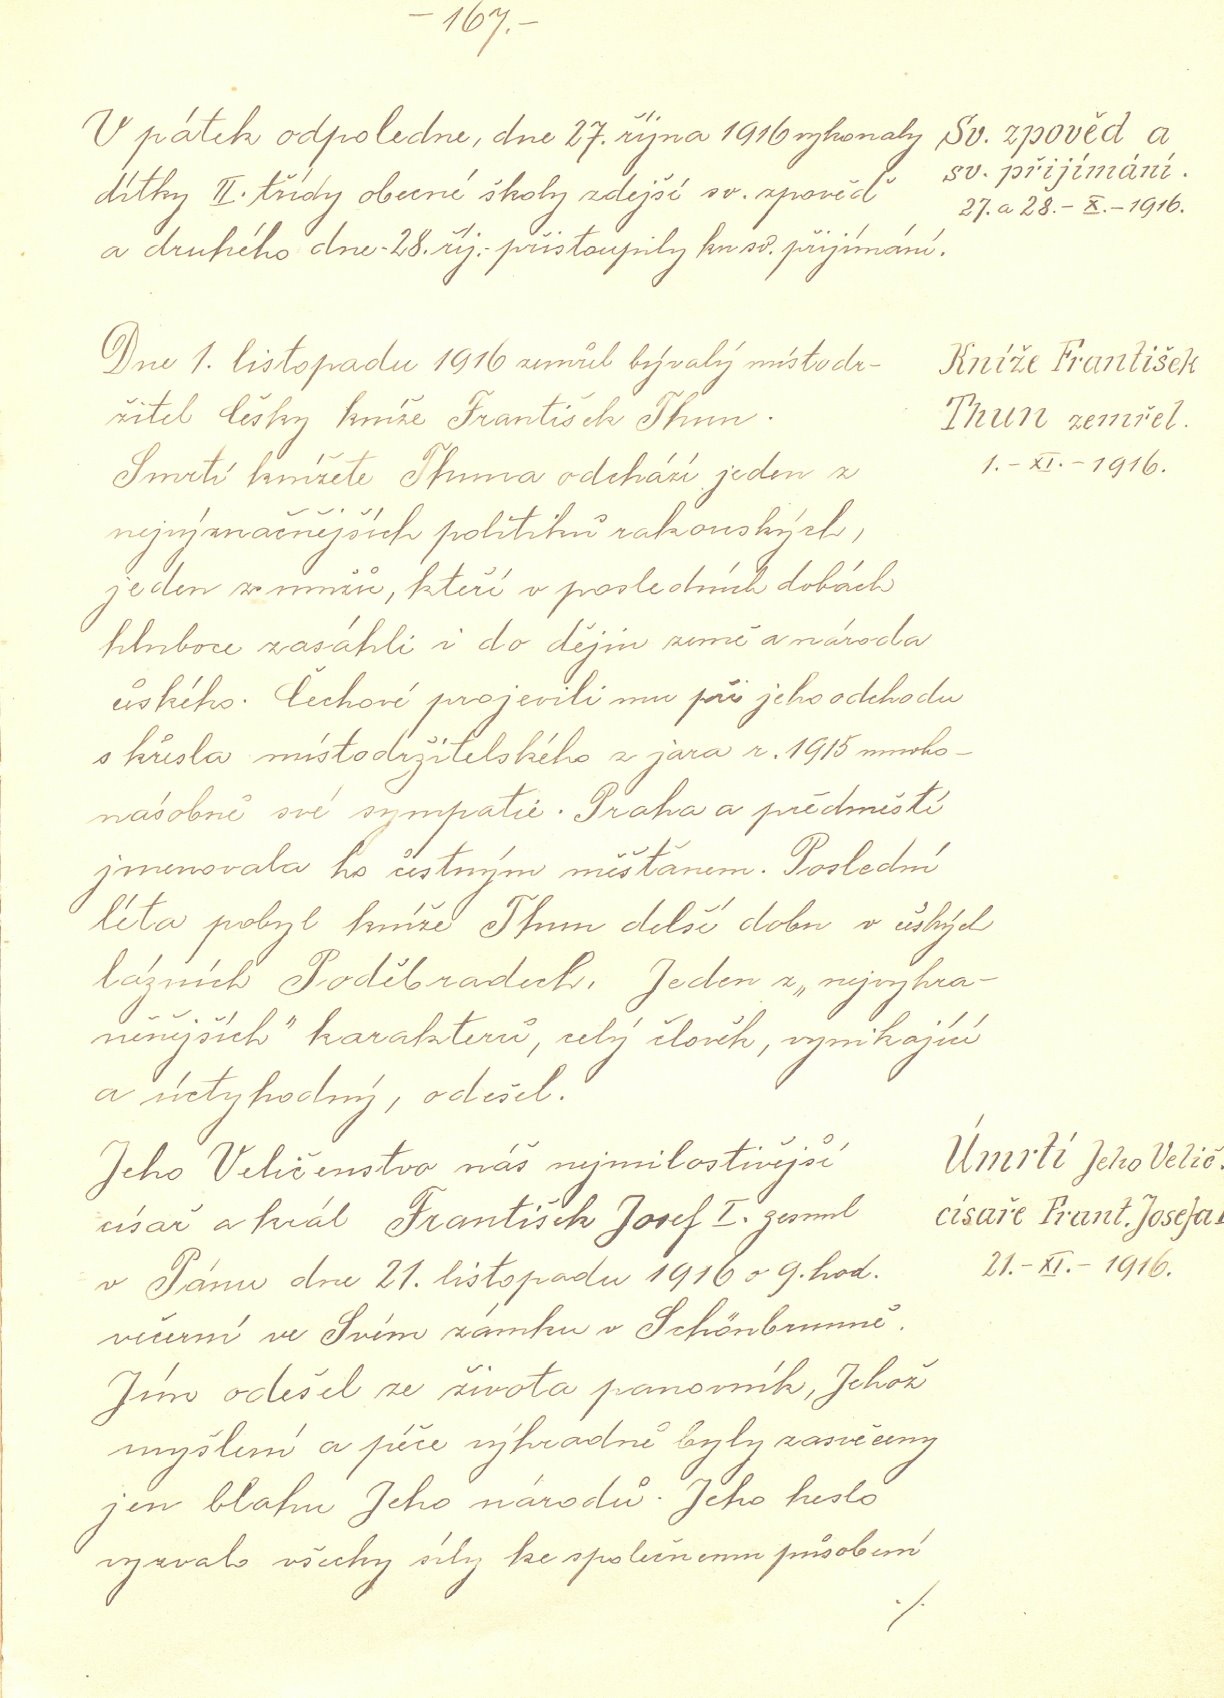 – 167. –
V pátek odpoledne, dne 27. října 1916 vykonaly
dítky II. třídy obecné školy zdejší sv. zpověď
a druhého dne - 28. říj. - přistoupily ku sv. přijímání.
Sv. zpověd a
sv. přijímání.
27. a 28. – X. – 1916.
Dne 1. listopadu 1916 zemřel bývalý místodr-
žitel český kníže František Thun.
Smrtí knížete Thuna odchází jeden z
nejvýznačnějších politiků rakouských,
jeden z mužů, kteří v posledních dobách
hluboce zasáhli i do dějin země a národa
českého. Čechové projevili mu při jeho odchodu
s křesla místodržitelského z jara r. 1915 mnoho-
násobně své sympatie. Praha a předměstí
jmenovala ho čestným měšťanem. Poslední
léta pobyl kníže Thun delší dobu v českých
lázních Poděbradech. Jeden z „nejvyhra-
něnějších" karakterů, celý člověk, vynikající
a úctyhodný, odešel.
Kníže František
Thun zemřel.
1. – XI. – 1916.
Jeho Veličenstvo náš nejmilostivější
císař a král František Josef I. zesnul
v Pánu dne 21. listopadu 1916 o 9. hod.
večerní ve Svém zámku v Schönbrunně.
Jím odešel ze života panovník, Jehož
myšlení a péče výhradně byly zasvěceny
jen blahu Jeho národů. Jeho heslo
vyzvalo všechny síly ke společnému působení
./.
Úmrtí Jeho Velič.
císaře Frant. Josefa I
21. – XI. – 1916.